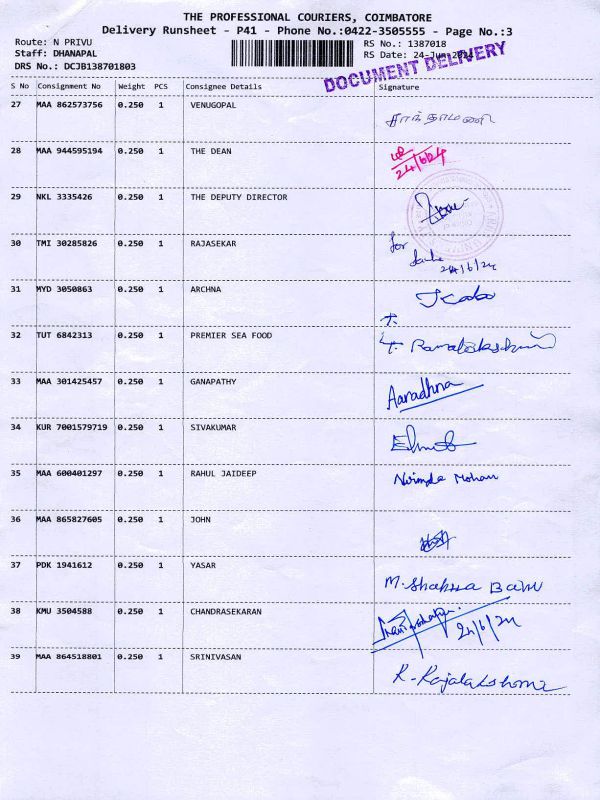 THE PROFESSIONAL COURIERS, COIMBATORE
Delivery Runsheet - P41 - Phone No.:0422-3505555 - Page No.:3
Route: N PRIVU RS No.: 1387018
Staff: DHANAPAL RS Date: 24-Jun-2024
DRS No.: DCJB138701803
DOCUMENT DELIVERY
S No Consignment No Weight PCS Consignee Details Signature
27 MAA 862573756 0.250 1 VENUGOPAL சாந்தாமணி
28 MAA 944595194 0.250 1 THE DEAN 24/6/24
29 NKL 3335426 0.250 1 THE DEPUTY DIRECTOR
30 TMI 30285826 0.250 1 RAJASEKAR for
24/6/24
31 MYD 3050863 0.250 1 ARCHNA
32 TUT 6842313 0.250 1 PREMIER SEA FOOD
33 MAA 301425457 0.250 1 GANAPATHY Aaradhna
34 KUR 7001579719 0.250 1 SIVAKUMAR
35 MAA 600401297 0.250 1 RAHUL JAIDEEP Mohan
36 MAA 865827605 0.250 1 JOHN
37 PDK 1941612 0.250 1 YASAR M. Shakna Banu
38 KMU 3504588 0.250 1 CHANDRASEKARAN 24/6/24
39 MAA 864518801 0.250 1 SRINIVASAN R. Rajalakshmi